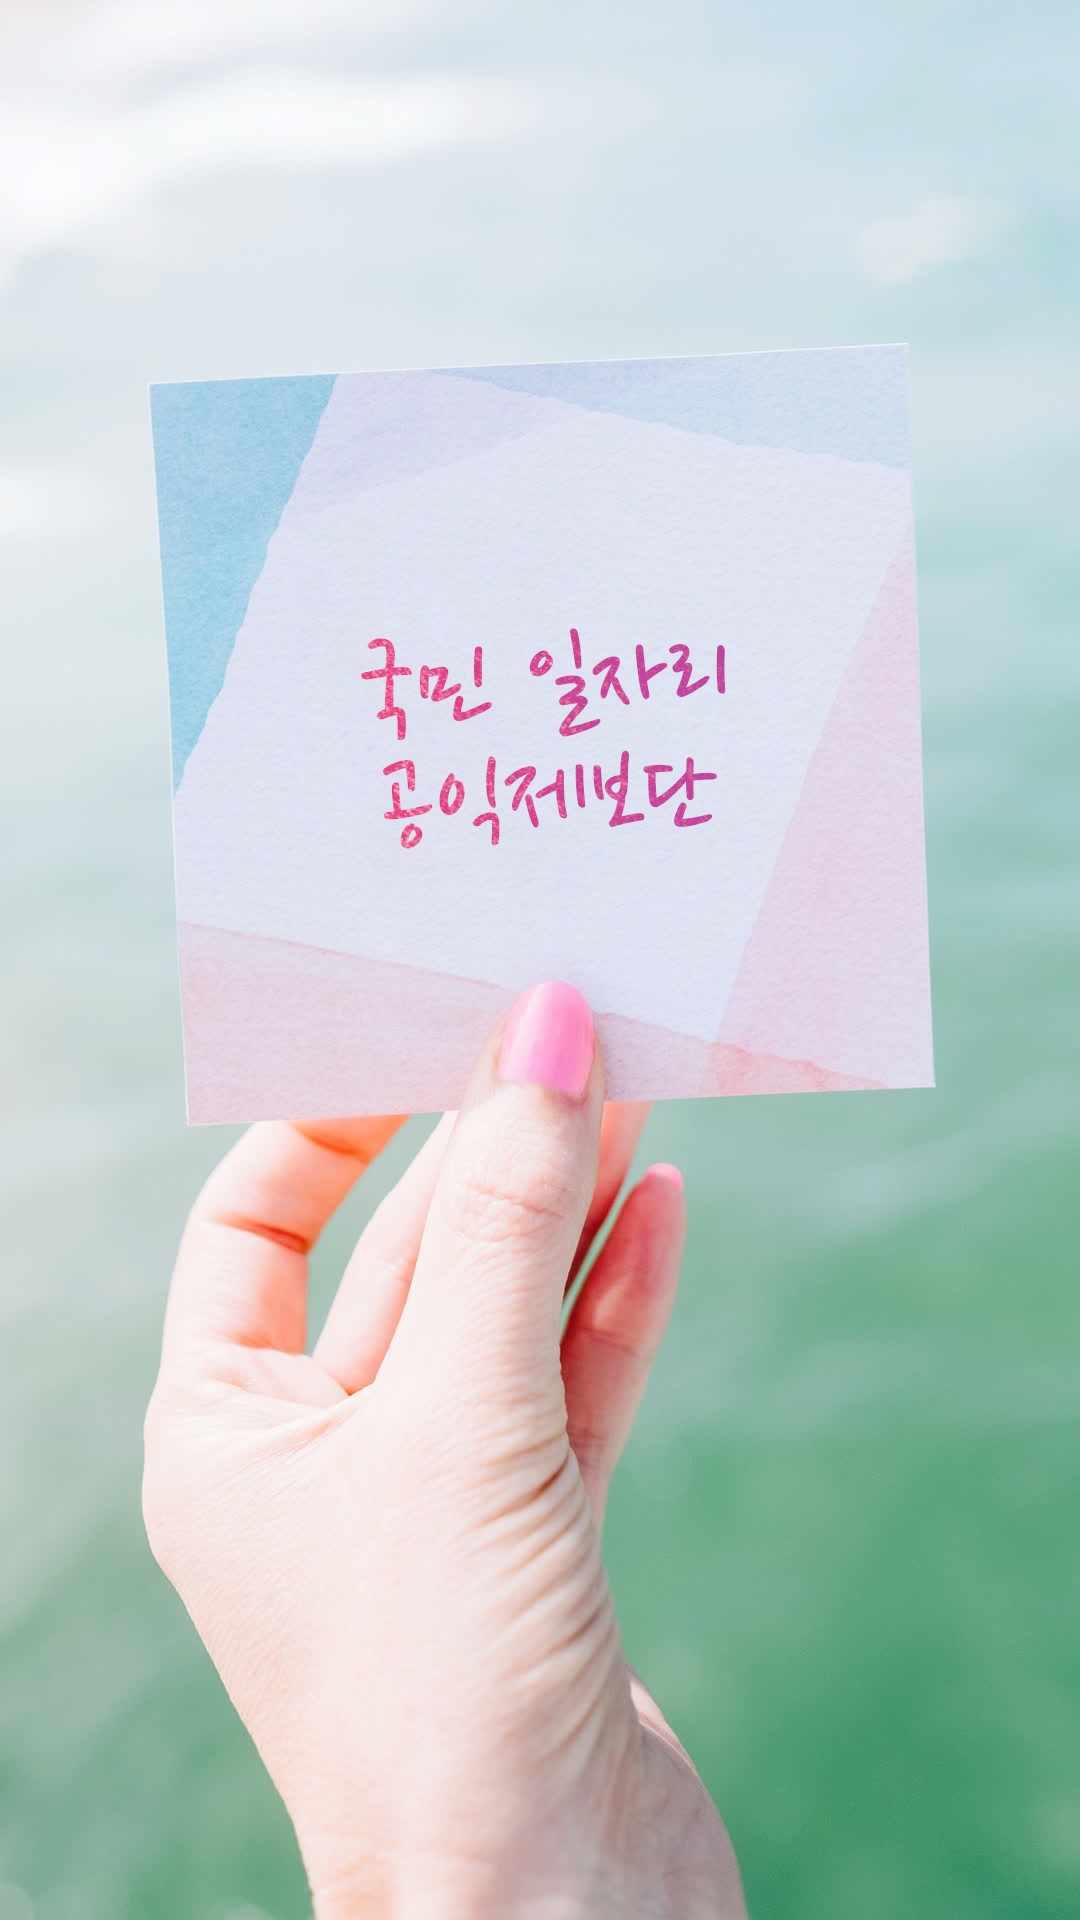 국민 일자리
공익제보단